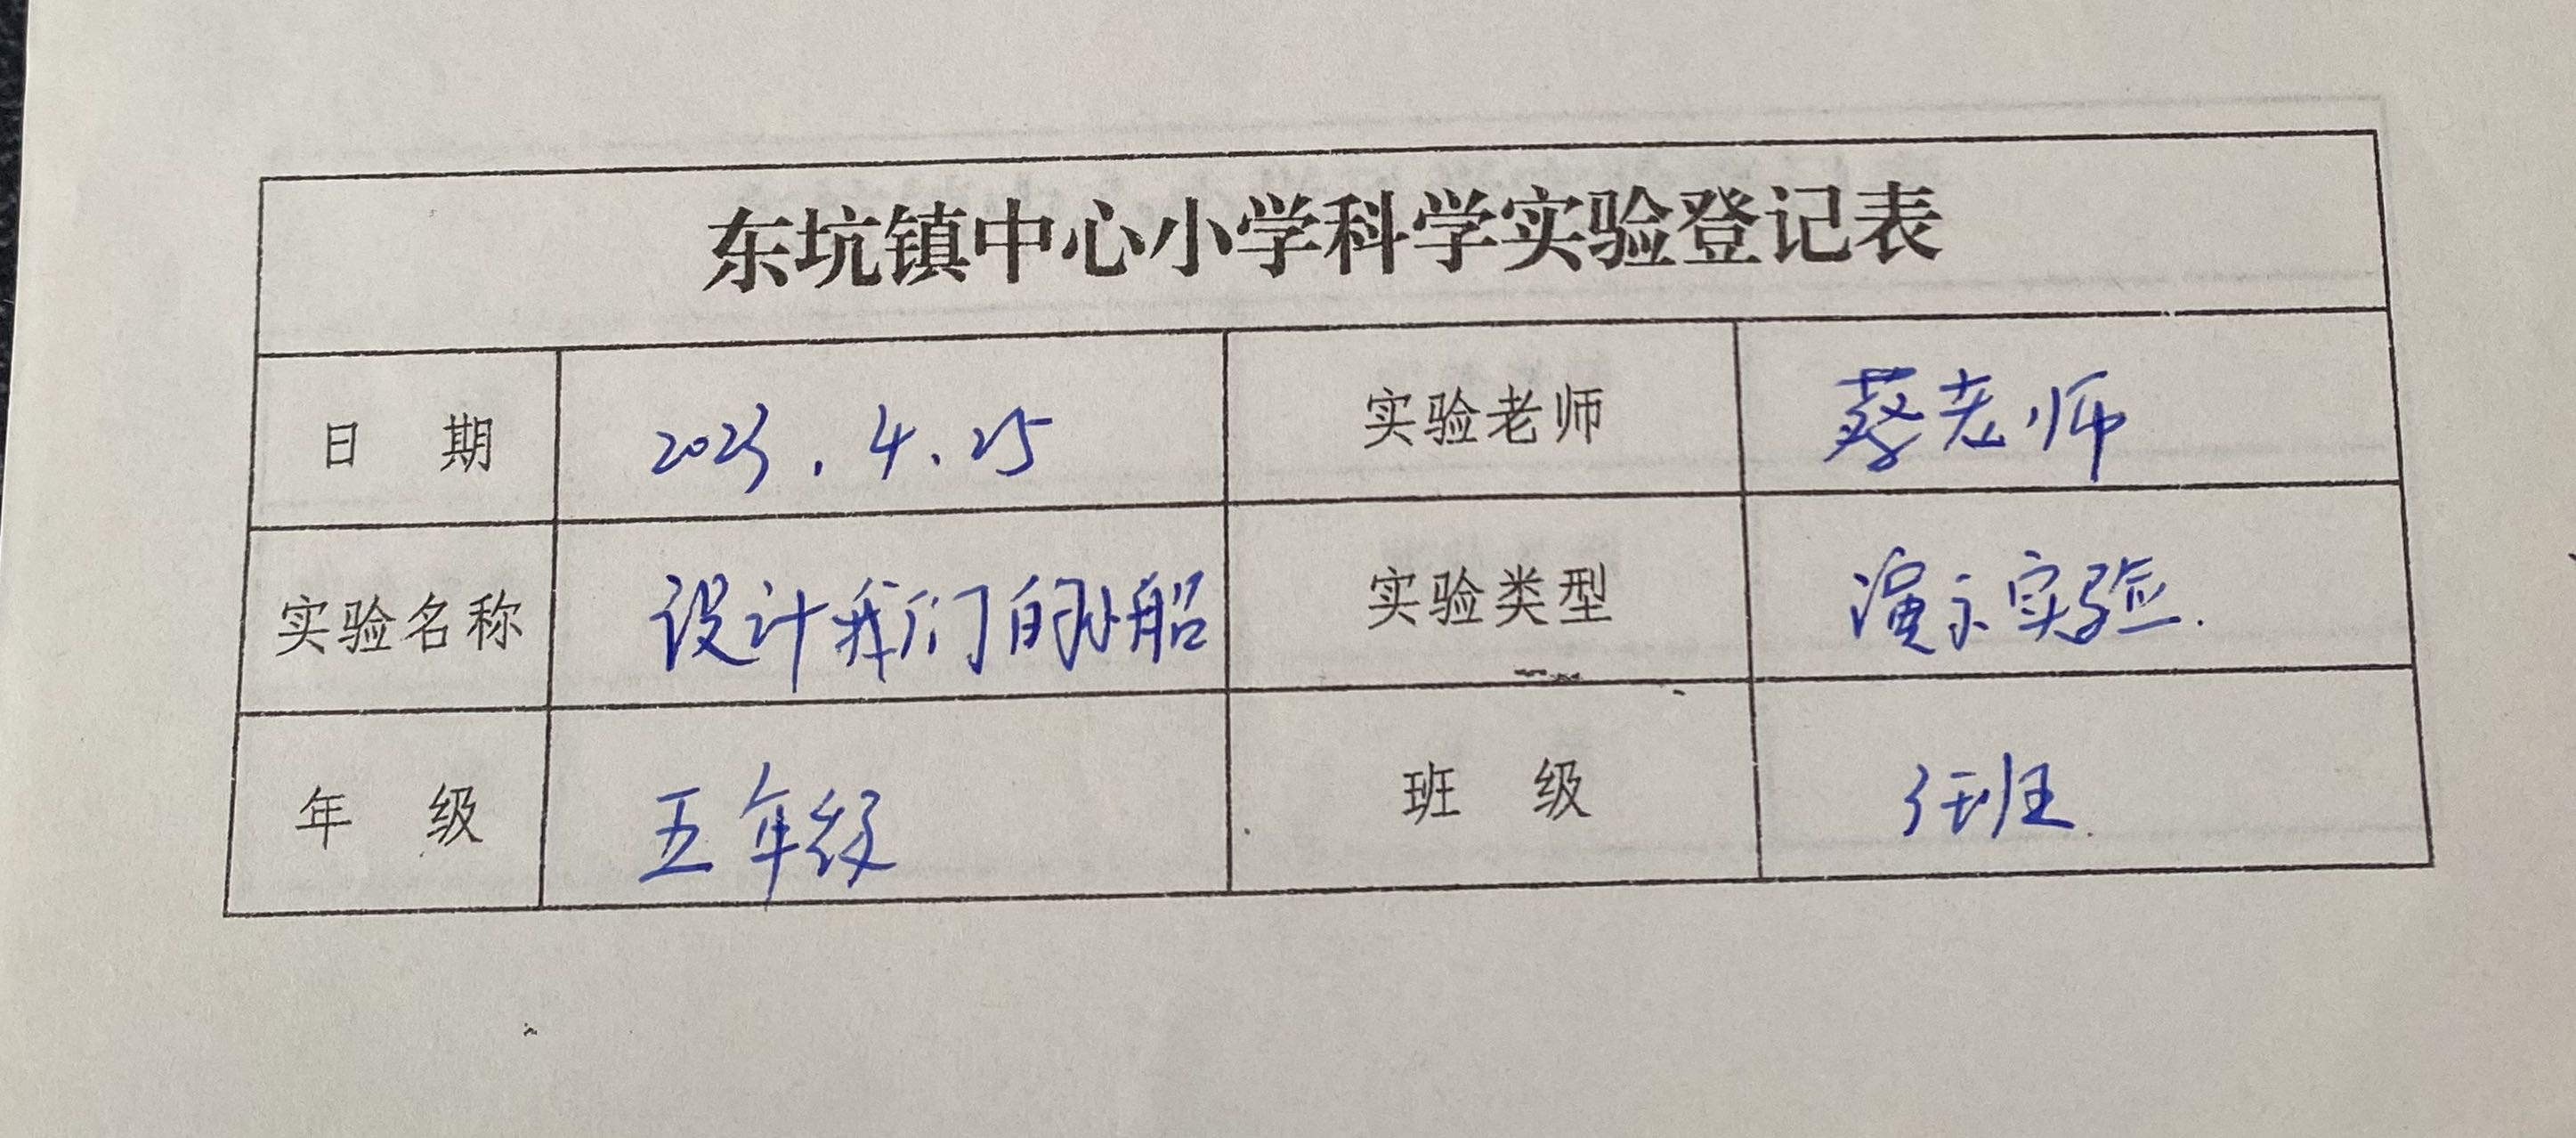 东坑镇中心小学科学实验登记表
日 期 2023.4.25 实验老师 蔡老师
实验名称 设计我们的小船 实验类型 演示实验.
年 级 五年级 班 级 班